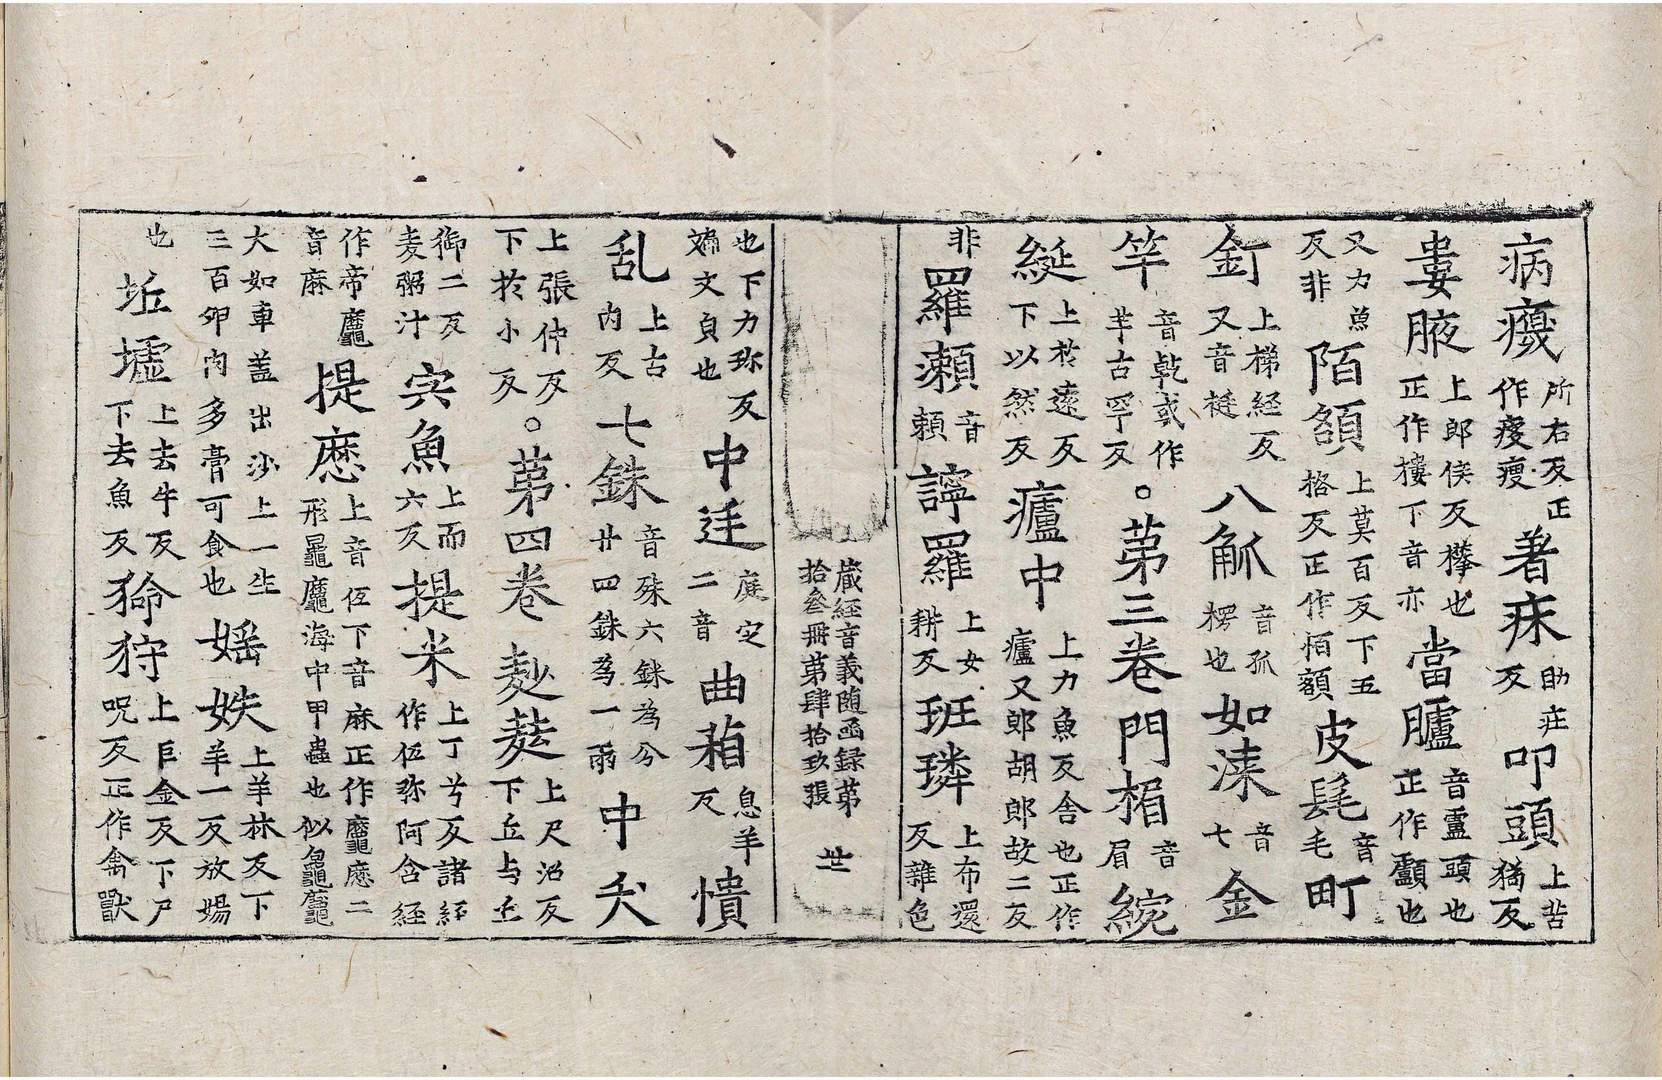 病㾽所右反正作瘦𤸃著床助庄反叩頭上苦猶反
婁腋上郎侯反㩳也正作摟下音亦當臚音靈頭也正作顱也
又力魚反非陌額上莫百反下五格反正作陌額皮髦音毛町
釘上梯経反又音梃八觚音孤楞也如漆音七金
竿音乹或作芉古罕反。苐三卷門楣音眉綩
綖上扵遠反下以然反廬中上力魚反舍也正作廬又郎胡郎故二反
非羅瀬音頼諪羅上女耕反班璘上布還反雜色
藏経音義随函録苐拾叄冊苐肆拾玖張 丗
也下力珎反𭹹文皃也中廷庭定二音曲葙息羊反憒
乱上古内反七銖音殊六銖为分廿四銖为一兩中夭
上張仲反下扵小反。苐四卷麨麸上尺沼反下丘与丘
御二反麦粥汁𡧓魚上而六反提米上丁兮反諸経作伍弥阿含経
作帝麑音麻提麽上音伍下音麻正作𪓬麽二形鼂𪓬海中甲蟲也似𪓬𪓬
大如車盖出沙上一生三百卵肉多膏可食也媱妷上羊林反下羊一反放婸
也坵墟上去牛反下去魚反狳狩上巨金反下尸呪反正作禽獸